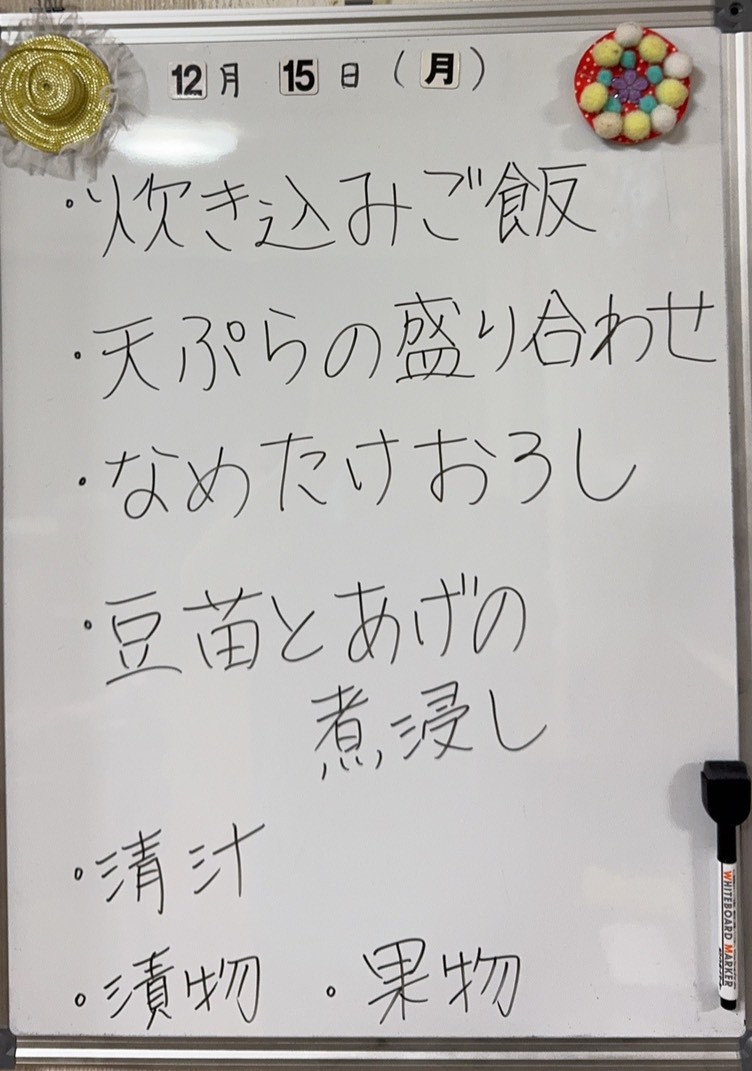 12月 15日(月)
・炊き込みご飯
・天ぷらの盛り合わせ
・なめたけおろし
・豆苗とあげの
煮浸し
・清汁
・漬物 ・果物
WHITEBOARD MARKER